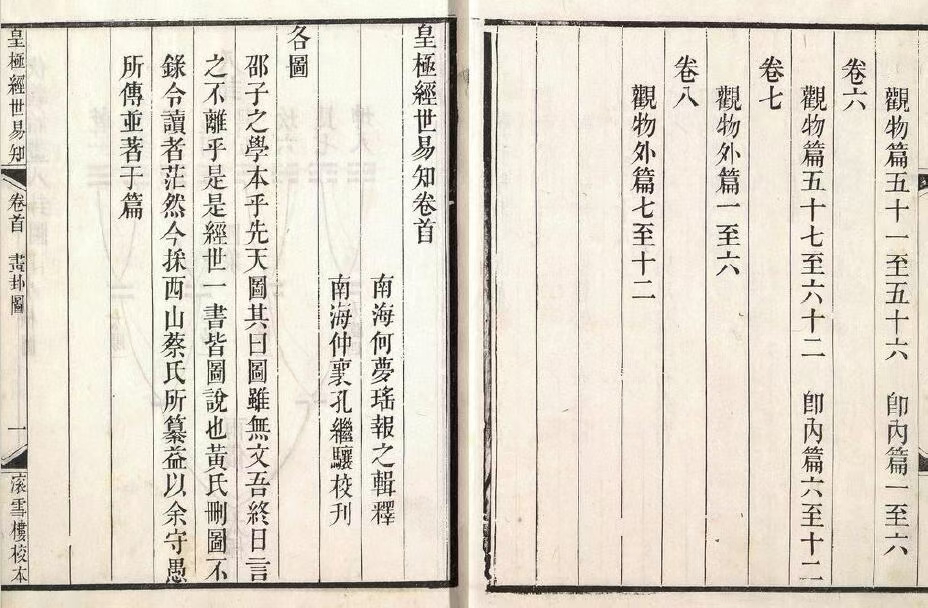 觀物篇五十一至五十六 卽內篇一至六
卷六
觀物篇五十七至六十二 卽內篇六至十二
卷七
觀物外篇一至六
卷八
觀物外篇七至十二
皇極經世易知卷首
南海何夢瑤報之輯釋
南海仲襄孔繼驤校刋
各圖
邵子之學本乎先天圖其曰圖雖無文吾終日言
之不離乎是是經世一書皆圖說也黃氏刪圖不
錄令讀者茫然今採西山蔡氏所纂益以余守愚
所傳並著于篇
皇極經世易知 卷首 畫卦圖 一 滚雪樓校本